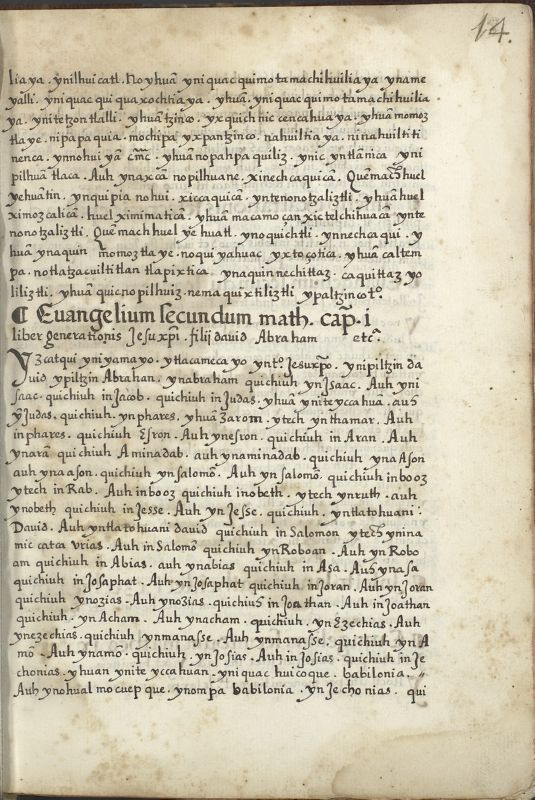 14.
liaya. ynilhuicatl. No yhuã yniquac quimotamachihuiliaya yname
yalli. yniquac quiquaxochtiaya. yhuã. yniquac quimotamachihuilia
ya. ynitetzontlalli. yhuã tzinco. yxquich nic cencahuaya. yhuã momoz
tlaye. nipapaquia. mochipa yxpantzinco. nahuiltiaya. ninahuiltiti
nenca. ynnohuiyã cẽmc̃. yhuã nopahpaquiliz. ynic yntlãnica yni
pilhuã tlaca. Auh ynaxcã nopilhuane. xinechcaquicã. Quẽmach huel
yehuãtin. ynquipia nohui. xiccaquicã. yntenonotzaliztli. yhuã huel
ximozcalicã. huel ximimaticã. yhuã macamo çan xictelchihuacã ynte
nonotzaliztli. Quẽmach huel yẽ huatl. ynoquichtli. ynnechcaqui. y
huã ynaquin momoztlaye. noquiyahuac yxtoçotica. yhuã caltem
pa. notlatzacuiltitlan tlapixtica. ynaquin nechittaz. caquittaz yo
liliztli. yhuã quicnopilhuiz. nemaquixtiliztli ypaltzinco tº.
¶ Euangelium secundum math. cap̃. i
liber generationis Jesuxp̃i. filij david Abraham etc̃.
Yzcatqui yniyamayo. ytlacamecayo yntº Jesuxp̃o. ynipiltzin da
uid ypiltzin Abrahan. ynabraham quichiuh ynJsaac. Auh yni
saac. quichiuh in Jacob. quichiuh in Judas. yhuã yniteyccahuã. auh
ỹJudas. quichiuh. ynphares. yhuã Zarom. ytech ynthamar. Auh
inphares. quichiuh Esron. Auh ynesron. quichiuh in Aran. Auh
ynarã quichiuh Aminadab. auh ynaminadab. quichiuh ynaAson
auh ynaason. quichiuh ynsalomõ. Auh yn salomõ. quichiuh inbooz
ytech in Rab. Auh inbooz quichiuh inobeth. ytech ynruth. auh
ynobeth quichiuh in Jesse. Auh yn Jesse. quichiuh. yntlatohuani:
David. Auh yntlatohuani david quichiuh in Salomon ytech ynina
mic catca vrias. Auh in Salomõ quichiuh ynRoboan. Auh yn Robo
am quichiuh in Abias. auh ynabias quichiuh in Asa. Auh ynasa
quichiuh in Josaphat. Auh yn Josaphat quichiuh in Joran. Auh yn Joran
quichiuh ynozias. Auh ynozias. quichiuh in Joathan. Auh in Joathan
quichiuh. yn Acham. Auh ynacham. quichiuh. yn Ezechias. Auh
ynezechias. quichiuh ynmanasse. Auh ynmanasse. quichiuh yn A
mõ. Auh ynamõ. quichiuh yn Josias. Auh in Josias. quichiuh in Je
chonias. yhuan yniteyccahuan. yniquac huicoque. babilonia. //
Auh ynohualmocuepque. ynompa babilonia. yn Jechonias. qui